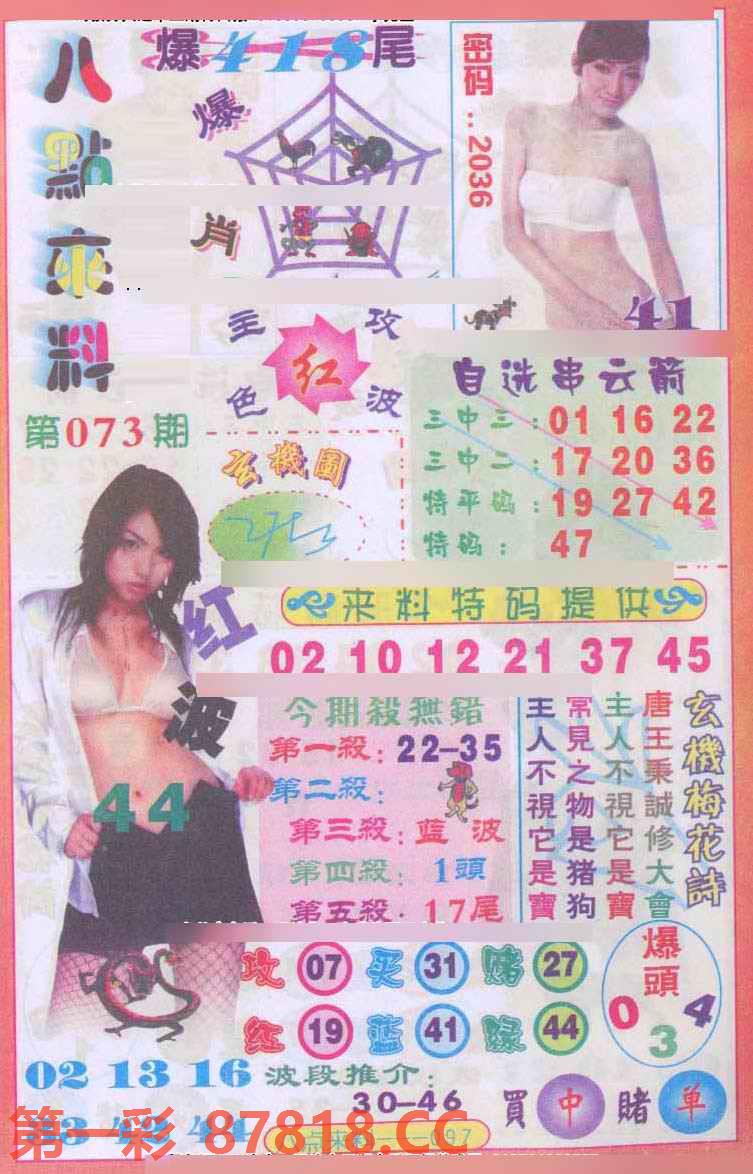 八點來料
爆418尾
爆肖
密码：2036
41
主攻
红
色波
第073期
玄機圖
自选串云箭
三中三：01 16 22
三中二：17 20 36
特平码：19 27 42
特码：47
来料特码提供
02 10 12 21 37 45
红波
44
今期殺無錯
第一殺：22-35
第二殺：
第三殺：蓝波
第四殺：1頭
第五殺：17尾
玄機梅花詩
唐王秉誠修大會
主人不視它是寶
常見之物是猪狗
主人不視它是寶
攻 07 买 31 赌 27
红 19 蓝 41 绿 44
爆頭
0 3 4
02 13 16
波段推介：
30-46
買 中 賭 单
第一彩 87818.CC